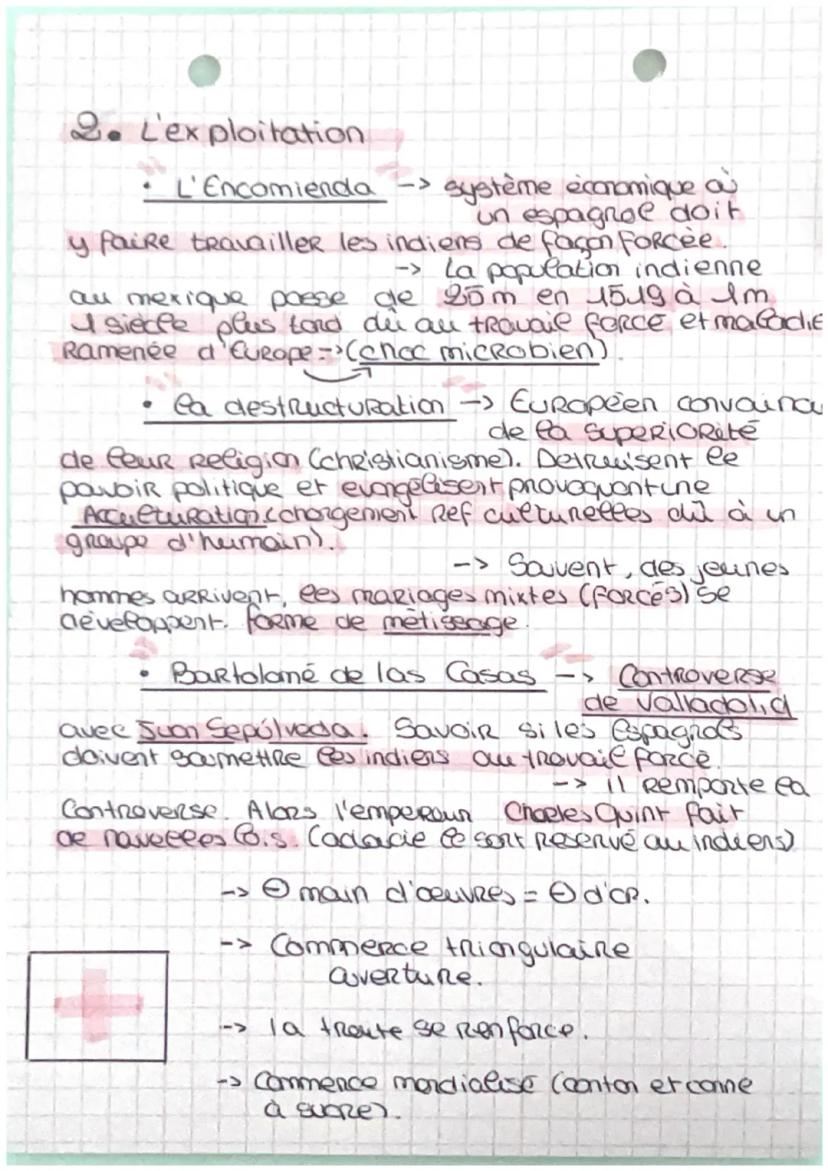 2. L'exploitation
• L'Encomienda -> système économique où
un espagnol doit
y faire travailler les indiens de façon forcée.
-> La population indienne
au mexique passe de 25m en 1519 à 1m
1 siècle plus tard dû au travail forcé et maladie
Ramenée d'Europe => (choc microbien).
• la destructuration -> Européen convaincu
de la supériorité
de leur religion (christianisme). Detruisent le
pouvoir politique et evangélisent provoquant une
Acculturation (changement Ref culturelles dû à un
groupe d'humain).
-> Souvent, des jeunes
hommes arrivent, les mariages mixtes (forcés) se
développent. forme de métissage.
• Bartolomé de las Casas -> Controverse
de Valladolid
avec Juan Sepúlveda. Savoir si les Espagnols
doivent soumettre les indiens au travail forcé.
-> il remporte la
Controverse. Alors l'empereur Charles Quint fait
de nouvelles lois. (adoucie le sort réservé au indiens)
-> ⊖ main d'oeuvres = ⊖ d'or.
-> Commerce triangulaire
ouverture.
-> la traite se renforce.
-> Commerce mondialisé (conton et canne
à sucre).